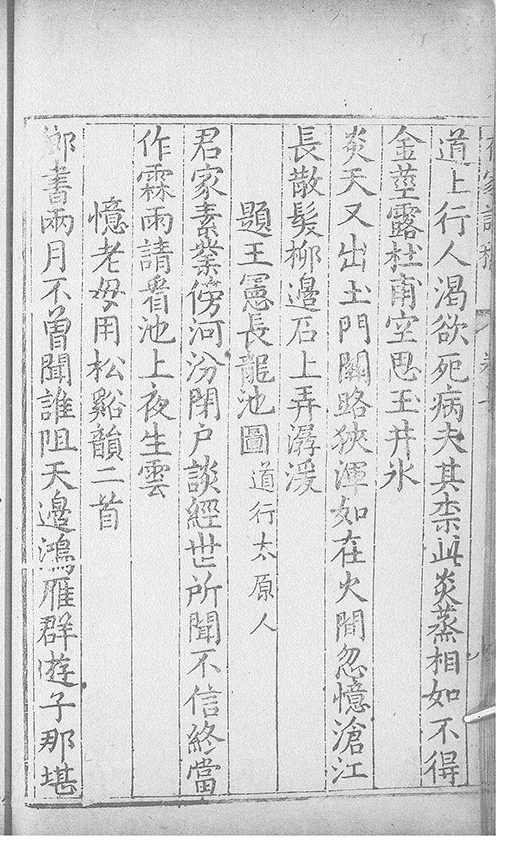 道上行人渴欲死病夫其柰此炎蒸相如不得
金莖露杜甫空思玉井氷
炎天又出土門關路狹渾如在火間忽憶滄江
長散髮柳邊石上弄潺湲
題王憲長龍池圖道行太原人
君家素業傍河汾閉户談經世所聞不信終當
作霖雨請看池上夜生雲
憶老母用松谿韻二首
鄉書兩月不曾聞誰阻天邊鴻雁群遊子那堪